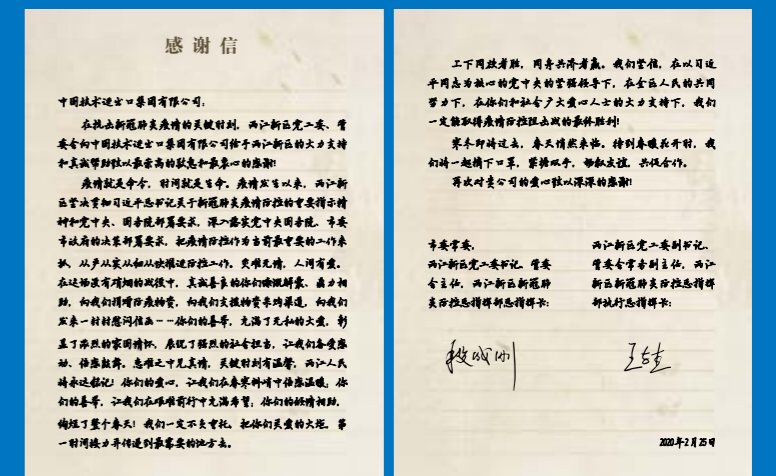 感谢信
中国技术进出口集团有限公司：
在抗击新冠肺炎疫情的关键时刻，两江新区党工委、管
委会向中国技术进出口集团有限公司给予两江新区的大力支持
和真诚帮助致以最崇高的敬意和最衷心的感谢！
疫情就是命令，时间就是生命。疫情发生以来，两江新
区坚决贯彻习近平总书记关于新冠肺炎疫情防控的重要指示精
神和党中央、国务院部署要求，深入落实党中央国务院、市委
市政府的决策部署要求，把疫情防控作为当前最重要的工作来
抓，从严从实从细从快推进防控工作。灾难无情，人间有爱。
在这场没有硝烟的战役中，真诚善良的你们慷慨解囊、鼎力相
助，向我们捐赠防疫物资，向我们支援物资来购渠道，向我们
发来一封封慰问信函--你们的善举，充满了无私的大爱，彰
显了浓烈的家国情怀，展现了强烈的社会担当，让我们备受感
动、倍感鼓舞。患难之中见真情，关键时刻有温馨，两江人民
将永远铭记！你们的爱心，让我们在春寒料峭中倍感温暖；你
们的善举，让我们在艰难前行中充满希望；你们的倾情相助，
绚烂了整个春天！我们一定不负重托，把你们关爱的火炬，第
一时间接力并传递到最需要的地方去。
上下同欲者胜，同舟共济者赢。我们坚信，在以习近
平同志为核心的党中央的坚强领导下，在全区人民的共同
努力下，在你们和社会广大爱心人士的大力支持下，我们
一定能取得疫情防控阻击战的最终胜利！
寒冬即将过去，春天悄然来临。待到春暖花开时，我
们将一起摘下口罩，紧握双手，畅叙友谊，共促合作。
再次对贵公司的爱心致以深深的感谢！
市委常委，
两江新区党工委书记、管委
会主任，两江新区新冠肺
炎防控总指挥部总指挥长：
两江新区党工委副书记、
管委会常务副主任，两江
新区新冠肺炎防控总指挥
部执行总指挥长：
2020年2月25日